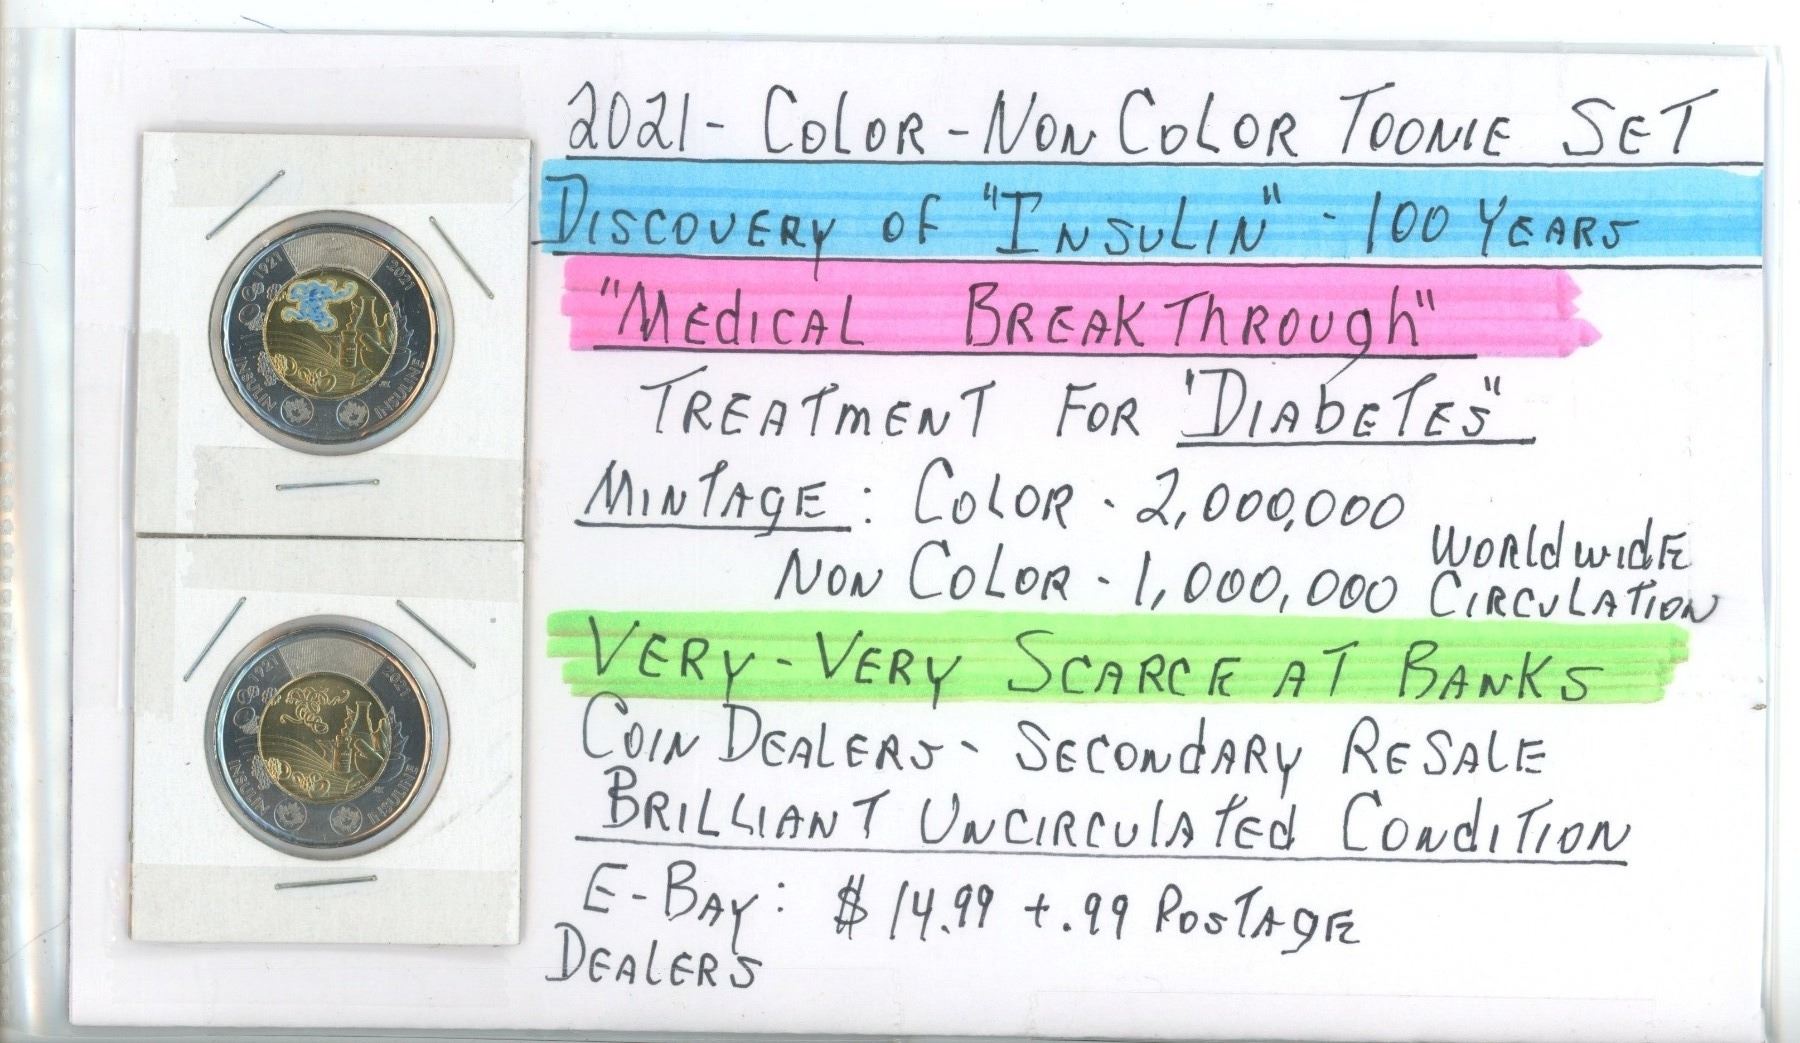 2021 - COLOR - NON COLOR TOONIE SET
DISCOVERY OF "INSULIN" - 100 YEARS
"MEDICAL BREAKTHROUGH"
TREATMENT FOR "DIABETES"
MINTAGE: COLOR - 2,000,000
NON COLOR - 1,000,000 WORLDWIDE CIRCULATION
VERY - VERY SCARCE AT BANKS
COIN DEALERS - SECONDARY RESALE
BRILLIANT UNCIRCULATED CONDITION
E-BAY: $14.99 + .99 POSTAGE
DEALERS
1921 2021
INSULIN INSULINE
1921 2021
INSULIN INSULINE